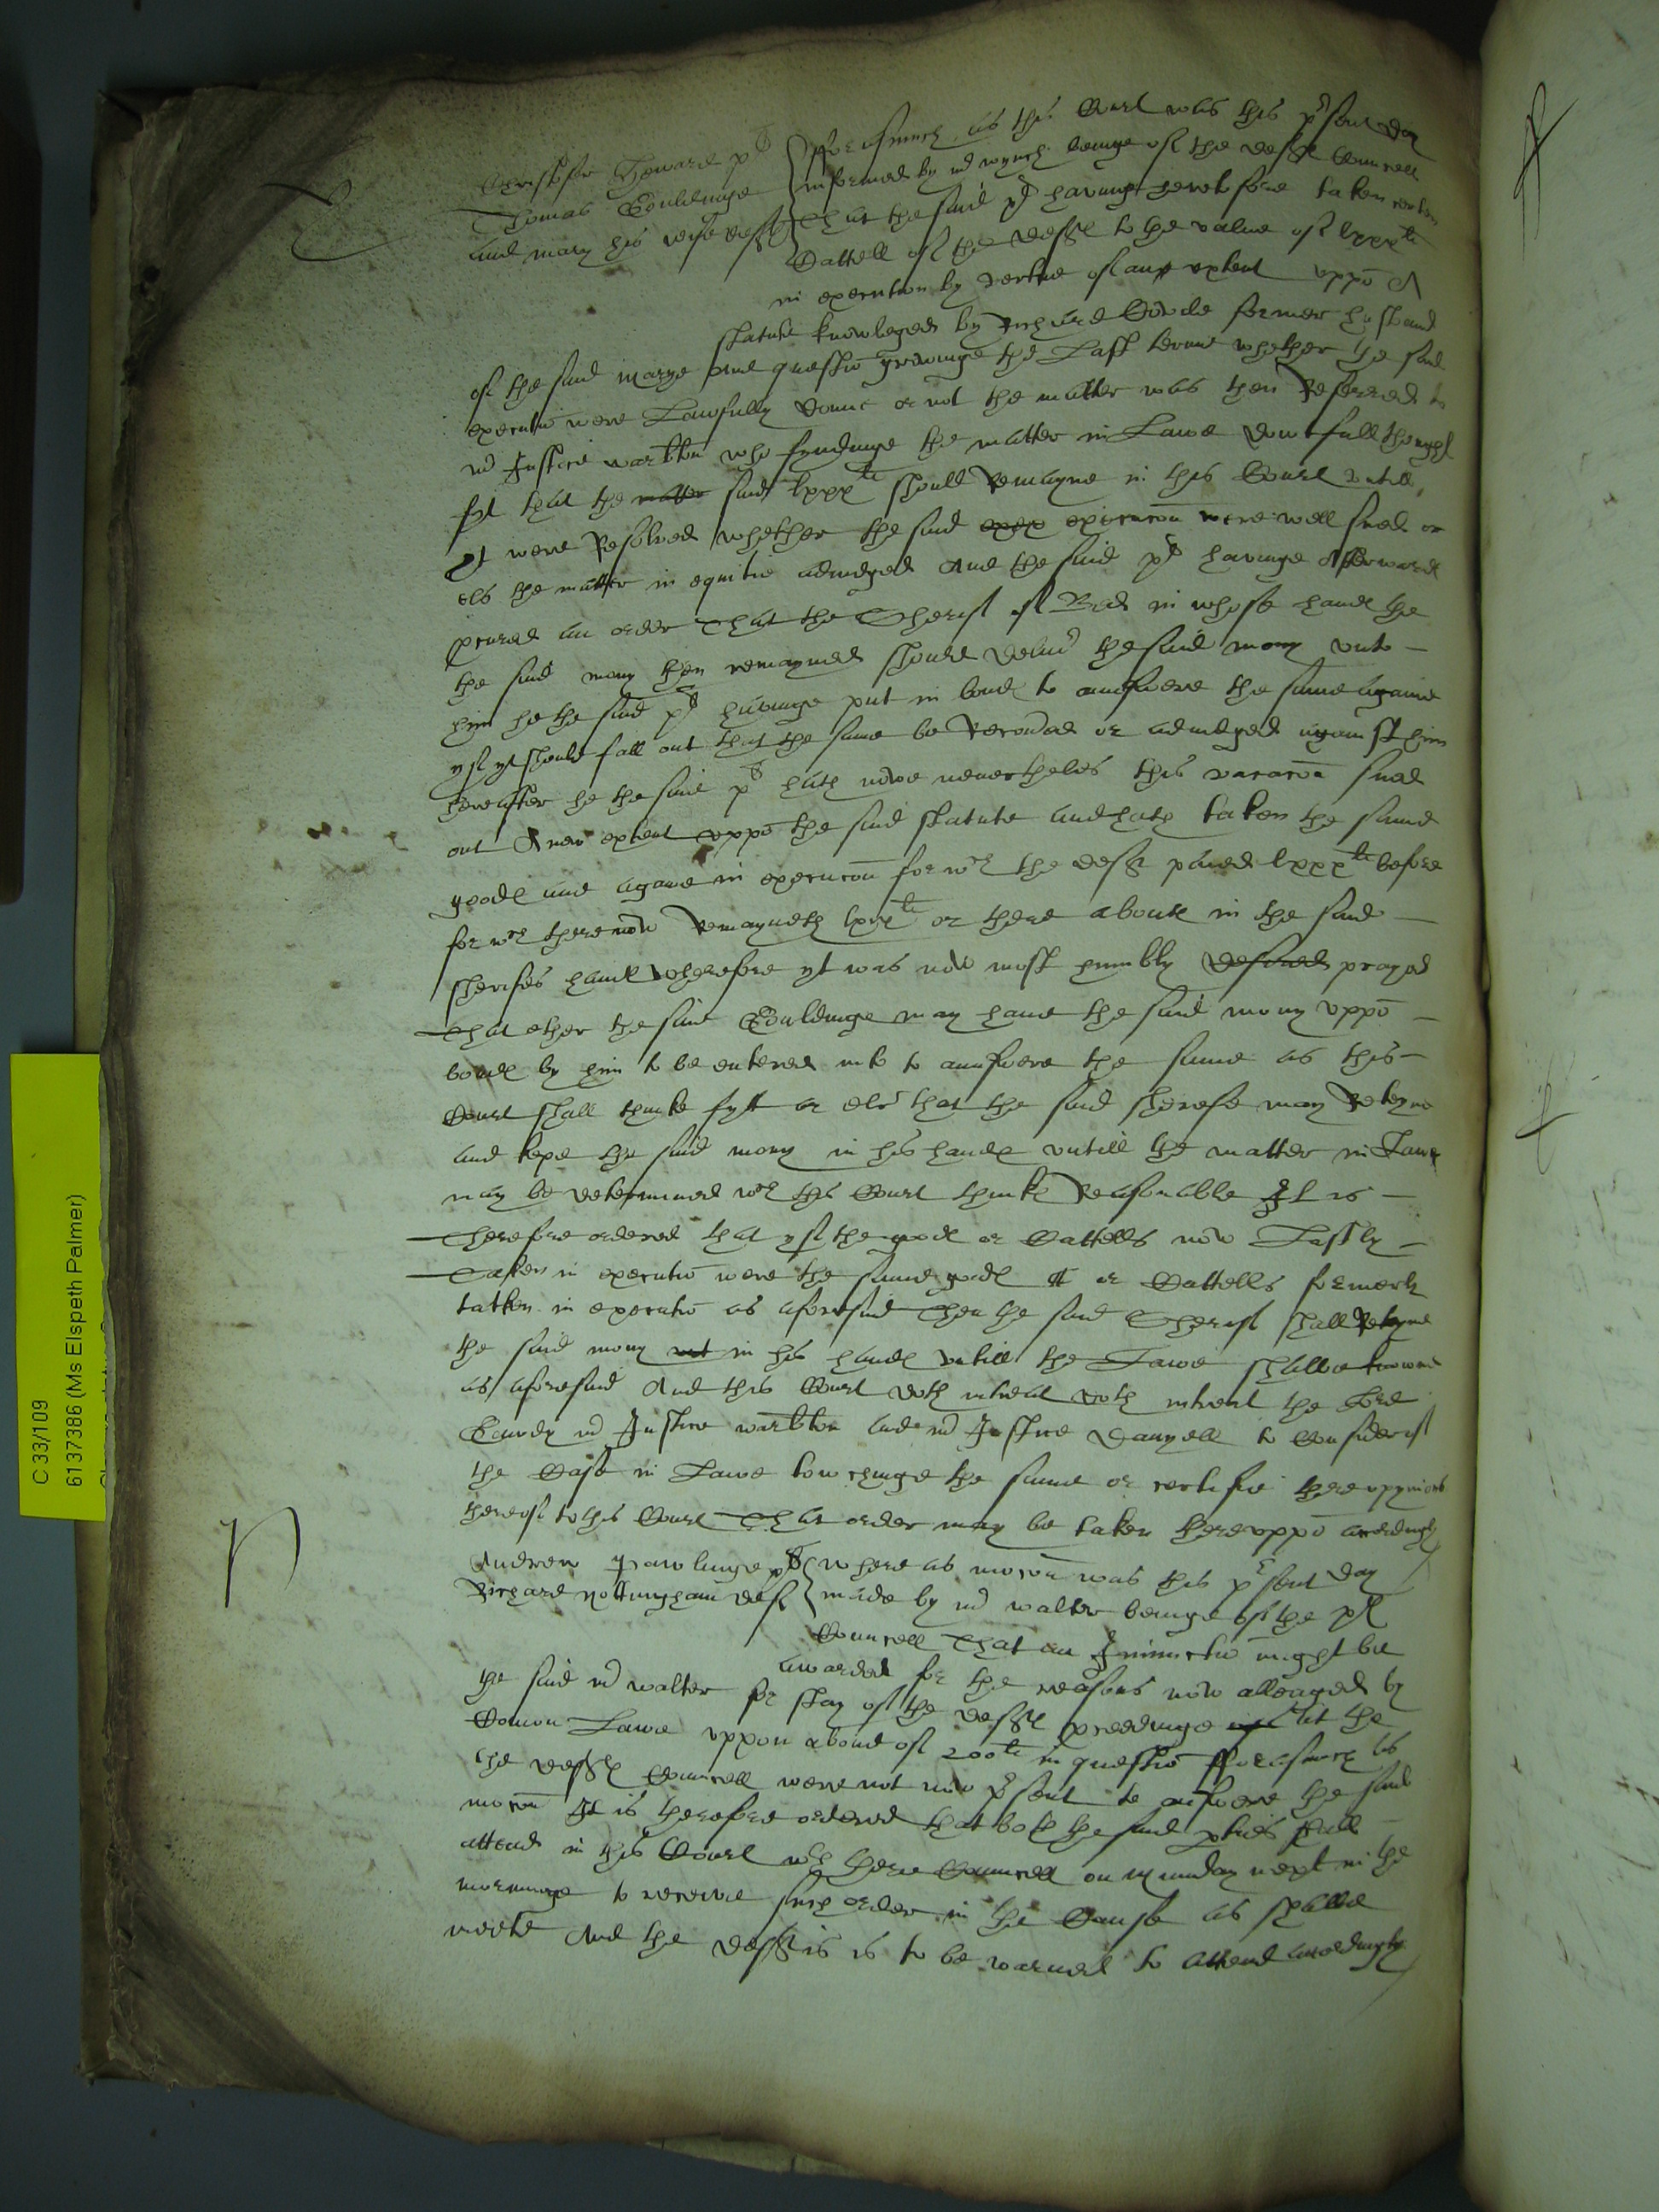 Christofer Howard pl
Thomas Gouldinge
and mary his wife deftes
fforasmuch as this Court was this p'sent day
informed by mr wynch beinge of the deftes Councell
That the said pl havinge heretofore taken certen
Cattell of the deftes to the value of lxxxli
in execution by vertue of an extent uppō A
statute knowleged by Richard Goode former husband
of the said marye and questiō growinge the Last terme whether the said
executiō were Lawfully donne or not the matter was then Referred to
mr Justice warbton who fyndinge the matter in Lawe dowtfull thought
fyt that the matter said lxxxli should Remayne in this Court untill
yt were Resolved whether the said exex execucōn were well sued or
els the matter in equitie adiudged And the said pl havinge Afterwards
pcured an order That the Sherif of Bed in whose hands the
the said mony then remayned should deliu' the said mony unto
him he the said pl havinge put in bond to answere the same againe
yf yt should fall out that the same be Recou'ed or adiudged against him
hereafter he the said pl hath nowe neuertheles this vacacōn sued
out A new extent uppō the said statute and hath taken the same
goods and againe in execucōn for wch the deft paied lxxxli before
for wch there now Remayneth lxxli or there aboute in the said
sherifes hands Wherefore yt was now most humbly desired prayed
That ether the said Gouldinge may have the said mony uppō
bonds by him to be entered into to answere the same as this
Court shall thinke fytt or els that the said sherife may Reteyne
and kepe the said mony in his hands untill the matter in Lawe
may be determined wch this Court thinks Reasonable It is
Therefore ordered that yf the goods or Cattells now Lastly
Taken in executiō were the same goods or Cattells formerly
taken in executiō as aforesaid Then the said Sherif shall Reteyne
the said mony in his hands untill the Lawe shalbe knowne
as aforesaid And this Court doth intreat doth intreat the Lord
Gawdy mr Justice warbton and mr Justice Danyell to Consider of
the Case in Lawe towchinge the same or certifie there opynions
thereof to this Court That order may be taken thereuppō accordingly
Andrew Rawlinge pl
Richard Nottingham deft
where as mocōn was this p'sent day
made by mr walter beinge of the pls
Councell That an Iniunctiō might be
awarded for the reasons now alleaged by
the said mr walter for stay of the deftes pceedinge at the
Comon Lawe uppon a bond of 200li in questiō fforasmuch as
the deftes Councell were not now p'sent to answere the said
mocōn It is therefore ordered that both the said pties shall
attend in this Court wth there Councell on munday next in the
morninge to receive such order in the Cause as shalbe
meete And the deft is is to be warned to attend accordingly
C 33/109
6137386 (Ms Elspeth Palmer)